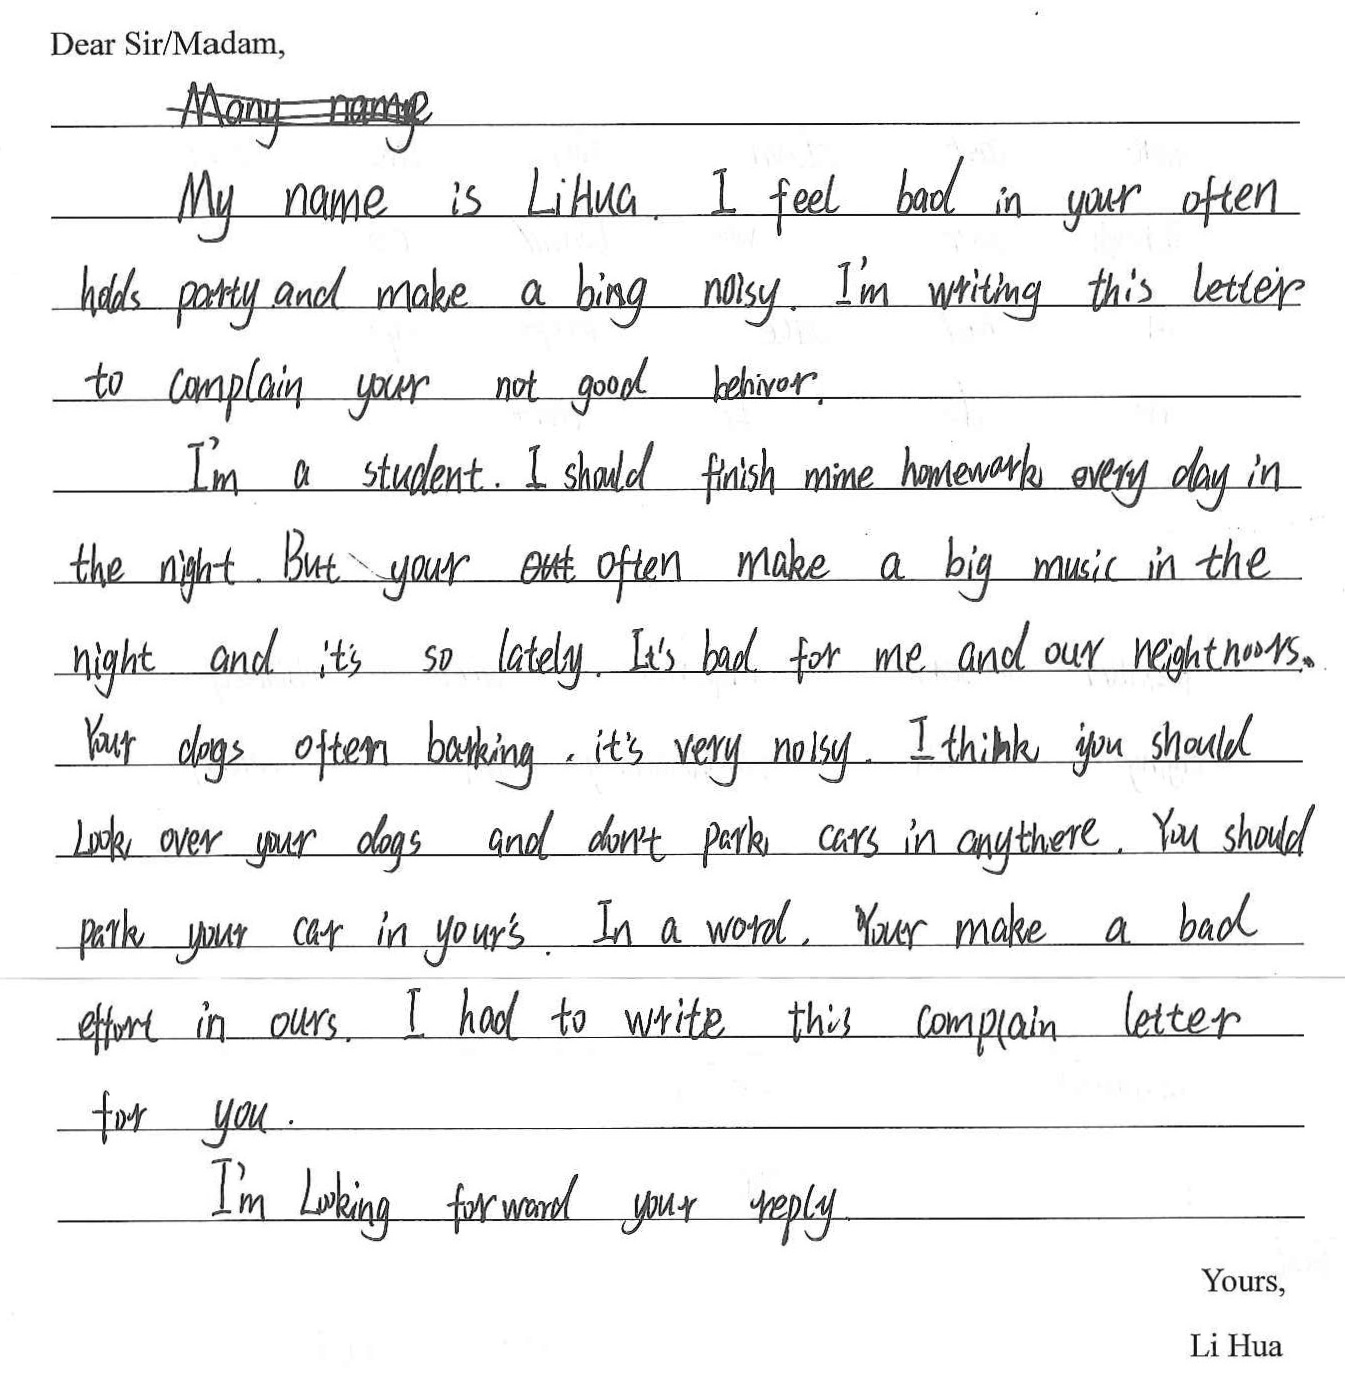 Dear Sir/Madam,
My name is LiHua. I feel bad in your often
holds party and make a bing noisy. I'm writing this letter
to complain your not good behivor.
I'm a student. I should finish mine homework every day in
the night. But your often make a big music in the
night and it's so lately. It's bad for me and our neightnoors.
Your dogs often barking. it's very noisy. I think you should
Look over your dogs and don't park cars in anythere. You should
park your car in your's. In a word. Your make a bad
effort in ours. I had to write this complain letter
for you.
I'm Looking forward your reply.
Yours,
Li Hua